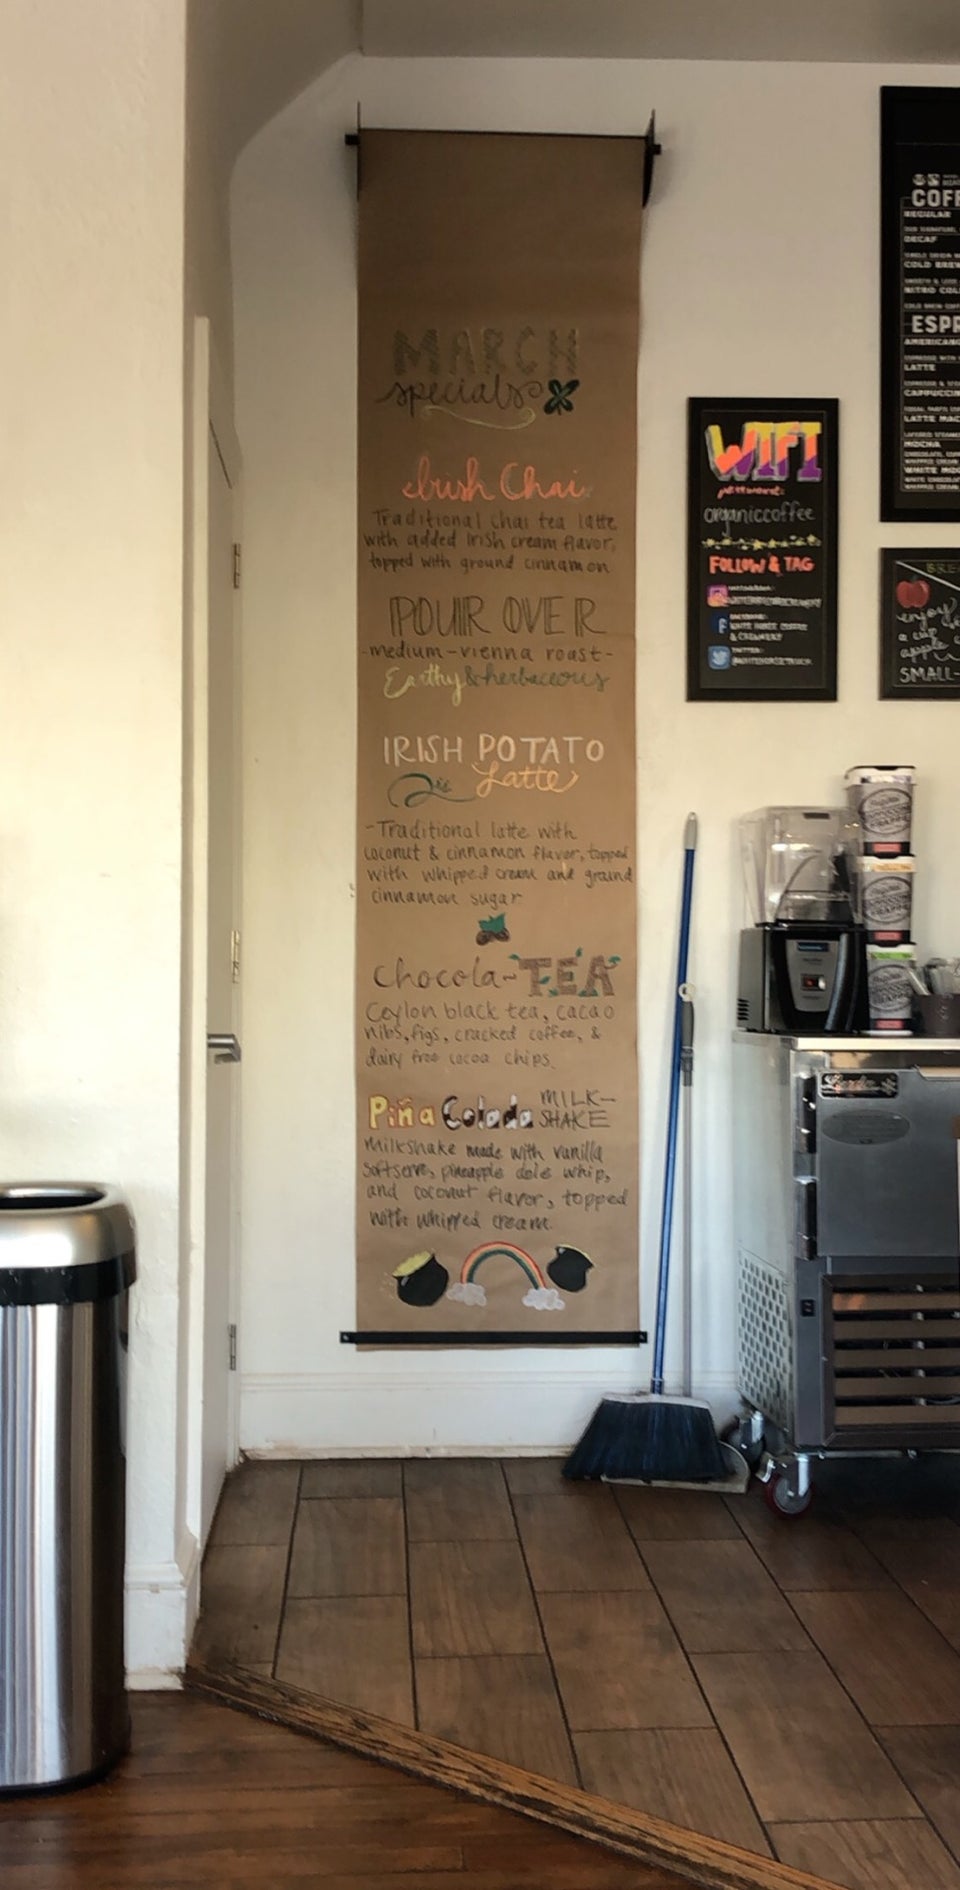 MARCH
specials
Irish Chai
Traditional chai tea latte
with added Irish cream flavor,
topped with ground cinnamon
POUR OVER
-medium-vienna roast-
Earthy & herbaceous
IRISH POTATO
Latte
-Traditional latte with
coconut & cinnamon flavor, topped
with whipped cream and ground
cinnamon sugar
Chocola-TEA
Ceylon black tea, cacao
nibs, figs, cracked coffee, &
dairy free cocoa chips.
Piña Colada MILK-
SHAKE
Milkshake made with vanilla
softserve, pineapple dole whip,
and coconut flavor, topped
with whipped cream.
WIFI
password:
organiccoffee
FOLLOW & TAG
INSTAGRAM:
FACEBOOK:
WHITE HORSE COFFEE
& CREAMERY
TWITTER:
COFF
REGULAR
DECAF
COLD BREW
NITRO COL
ESPR
AMERICANO
LATTE
CAPPUCCIN
LATTE MAC
MOCHA
WHITE MOC
BRE
enjoy
a cup
apple
SMALL-